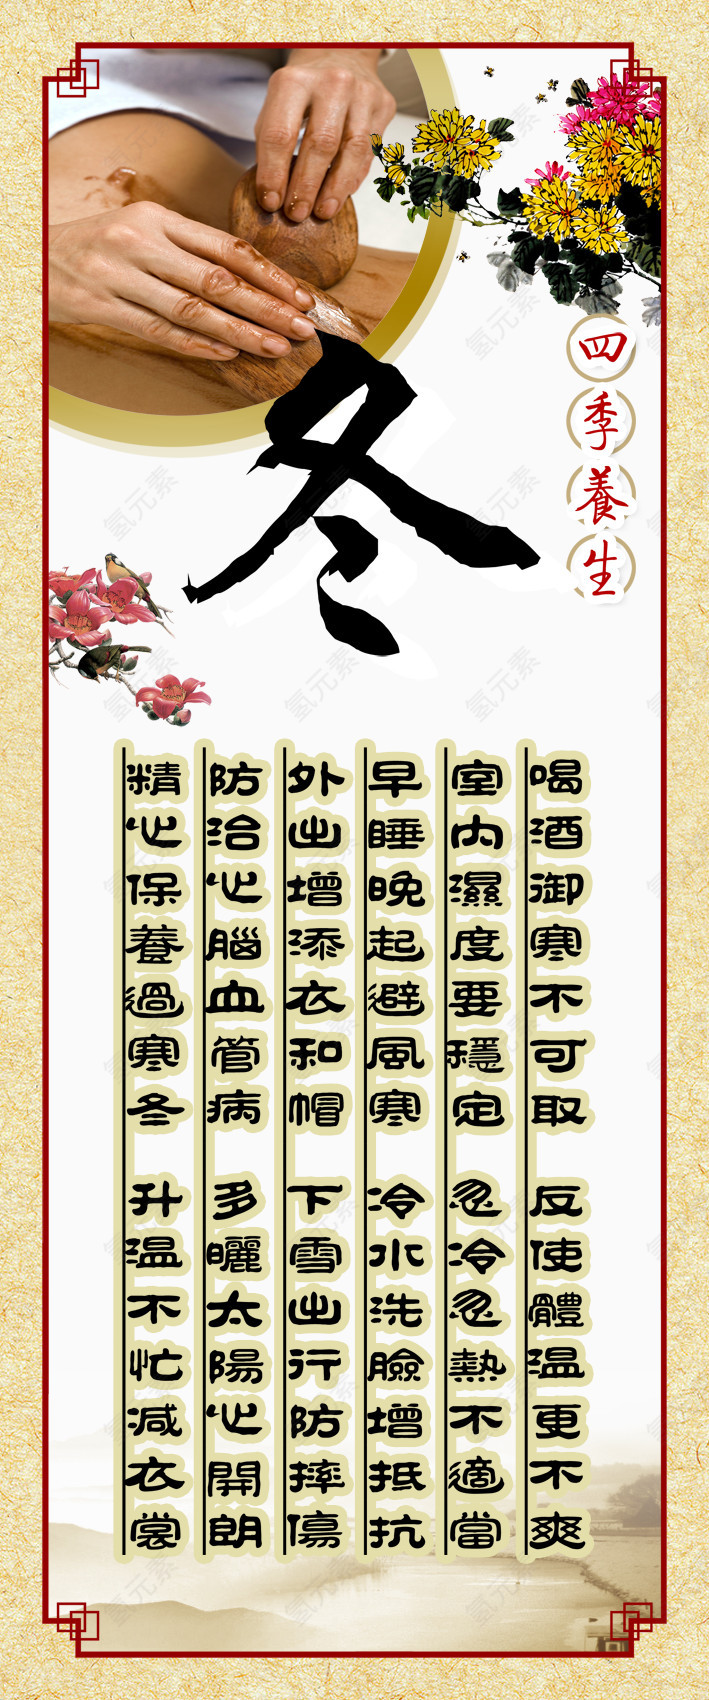 冬
四季養生
喝酒御寒不可取 反使體溫更不爽
室內濕度要穩定 忽冷忽熱不適當
早睡晚起避風寒 冷水洗臉增抵抗
外出增添衣和帽 下雪出行防摔傷
防治心腦血管病 多曬太陽心開朗
精心保養過寒冬 升溫不忙減衣裳
氢元素